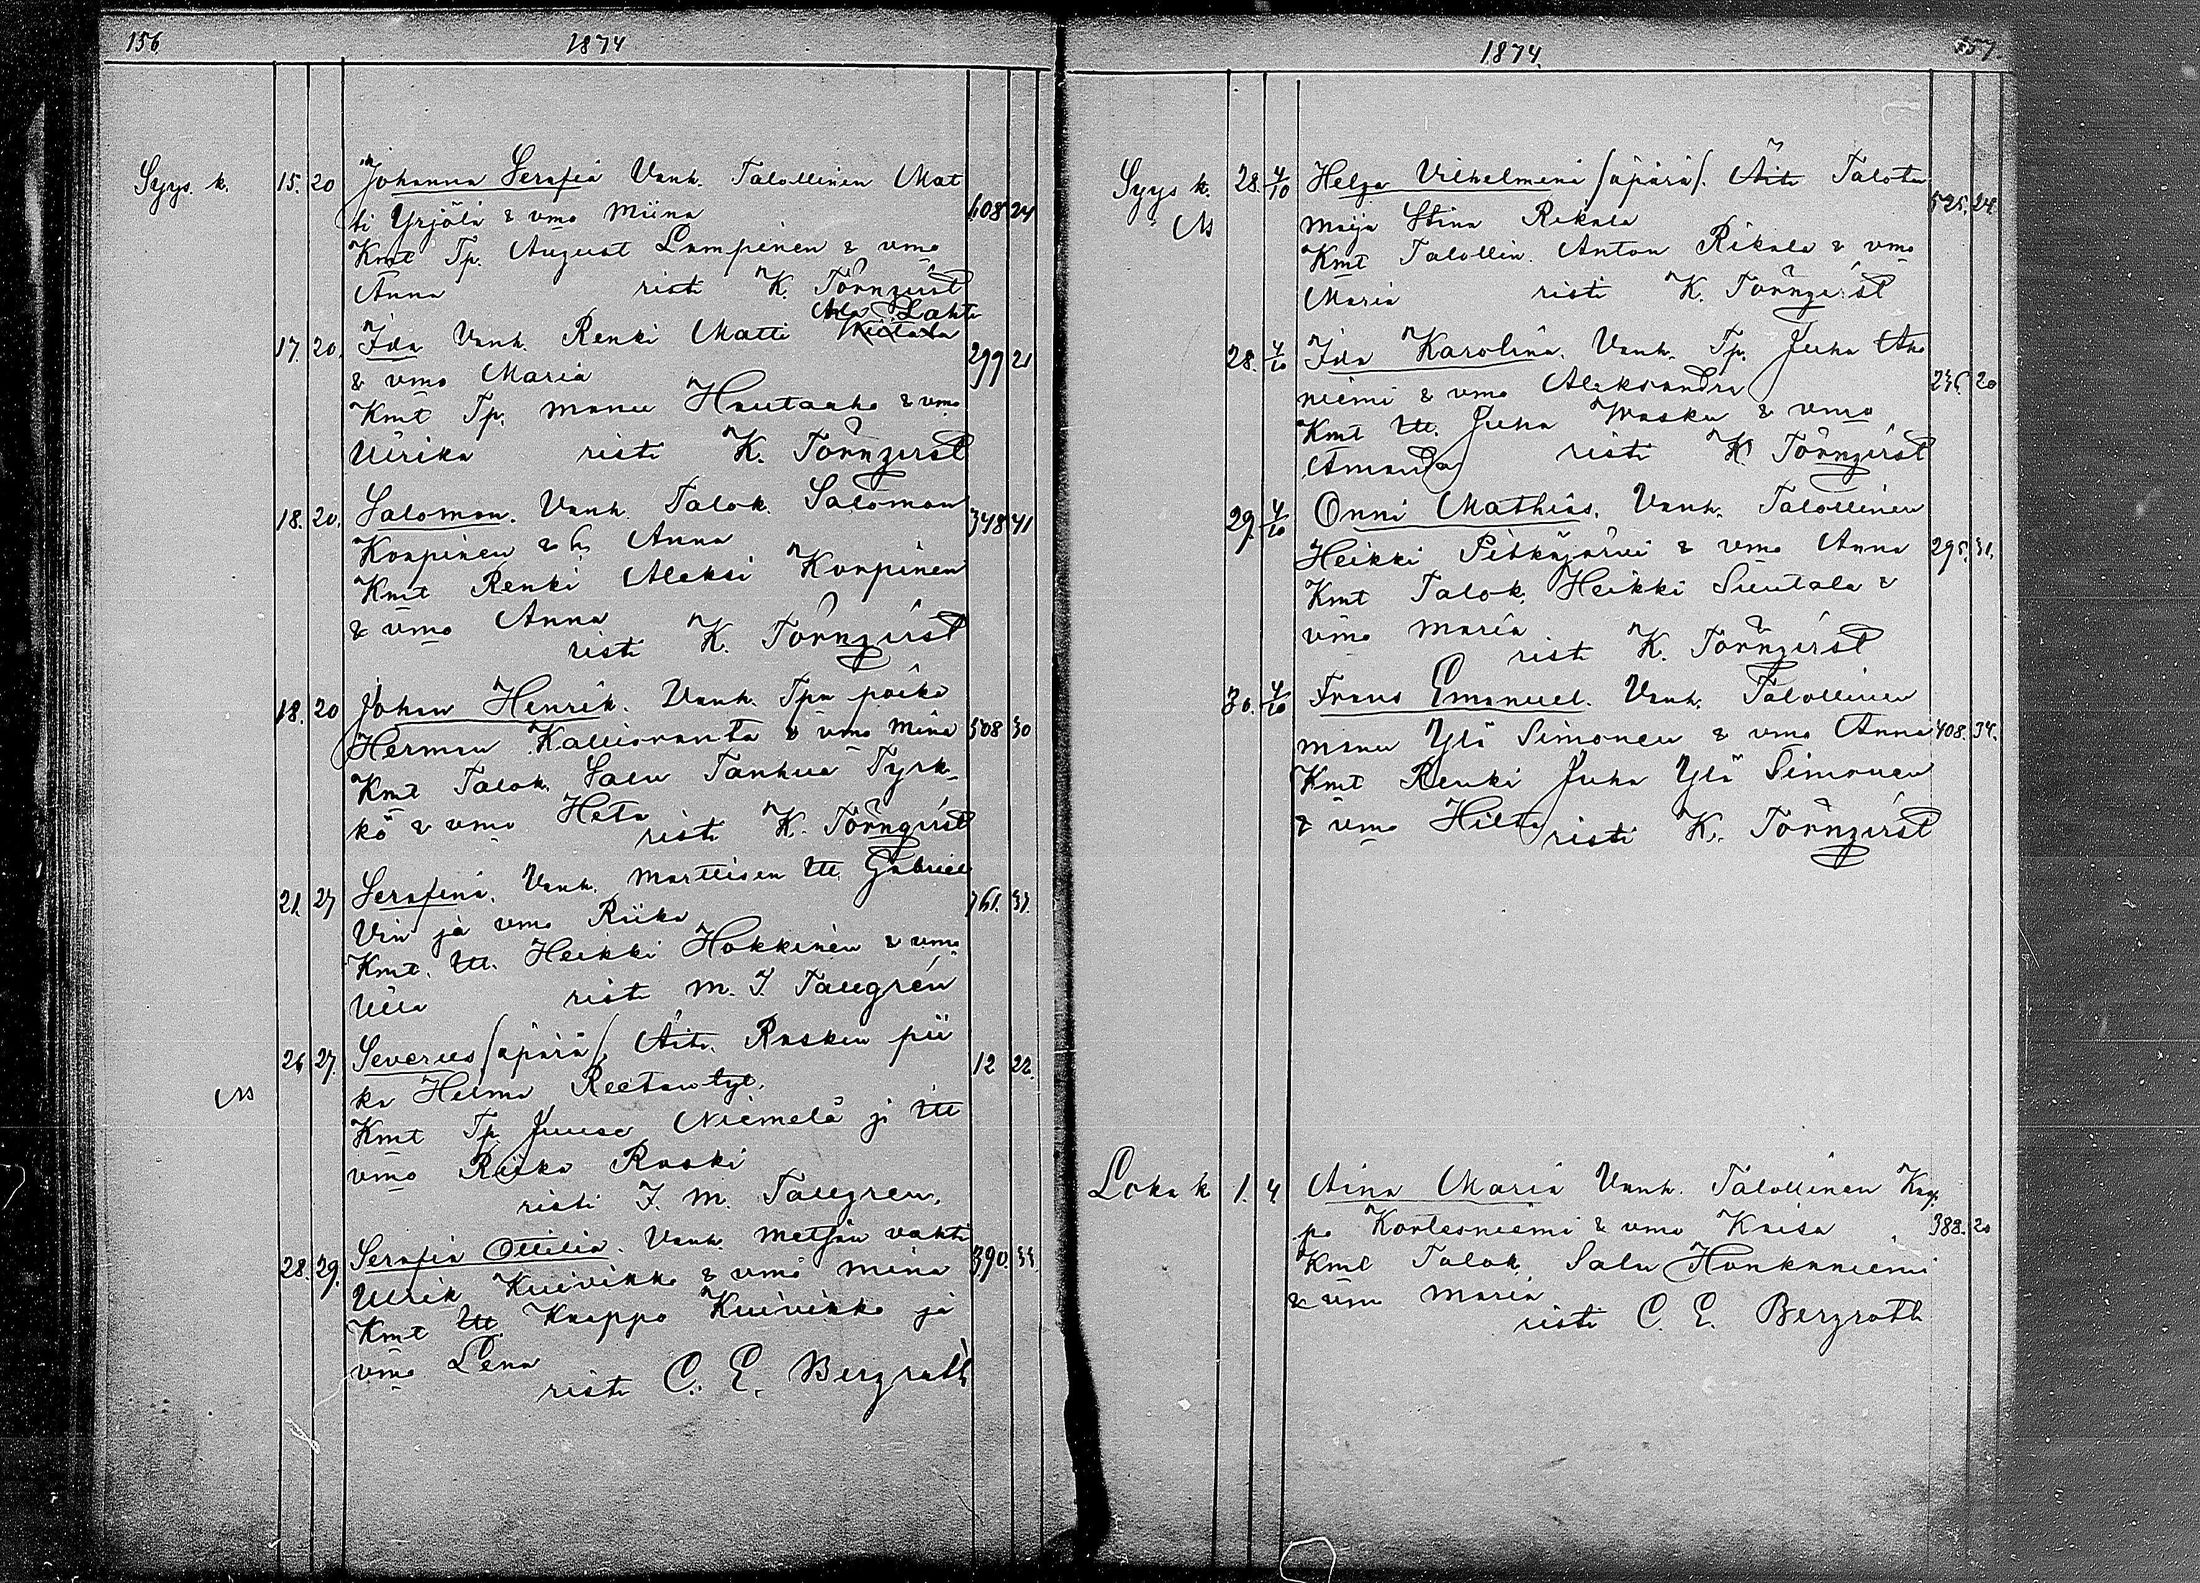 156 1874
Syys. k. 15. 20 Johanna Serafia Vanh. Talollinen Mat
ti Yrjölä & vmo Miina 608 24
Kmt Tp. August Lampinen & vmo
Anna risti K. Törnqvist
Ala Lahti
17. 20. Ida Vanh. Renki Matti
& vmo Maria 299 21
Kmt Tp. Manu Hautaaho & vmo
Ulrika risti K. Törnqvist
18. 20. Salomon. Vanh. Talok. Salomon 348 41
Korpinen & h Anna
Kmt Renki Aleksi Korpinen
& vmo Anna
risti K. Törnqvist
18. 20 Johan Henrik. Vanh. Tpn poika
Herman Kallioranta & vmo Mina 508 30
Kmt Talok. Salu Tanhua Tyrk
kö & vmo Heta
risti K. Törnqvist
21. 27 Serafina. Vanh. Marttisen Itl. Gabriel
Vin ja vmo Riika 761. 37.
Kmt. Itl. Heikki Hokkinen & vmo
Ulla risti M. I. Tallgrén
26 27. Severus /äpärä/. Äiti. Raskin pii 12 22.
Ns ka Helma tyt.
Kmt Tp Juuse Niemelä ja Itl
vmo Riika Raski
risti I. M. Tallgren,
28. 29. Serafia Ottilia. Vanh. Metsän vahti 390. 33.
Ulrik Kuivikko & vmo Mina
Kmt Itl. Knappo Kuivikko ja
vmo Lena
risti C. E. Bergroth
1874. 157.
Syys k. 28. 4/10 Helga Vilhelmina /äpärä/. Äiti Talotu
Ns Maija Stina Rikala 525. 24.
Kmt Talollin. Anton Rikala & vmo
Maria risti K. Törnqvist
28. 4/10 Ida Karolina. Vanh. Tp. Juha Aho
niemi & vmo Aleksandra 236. 20
Kmt Itl. Juha Wasku & vmo
Amanda risti K Törnqvist
29. 4/10 Onni Mathias. Vanh. Talollinen
Heikki Pitkäjärvi & vmo Anna 295. 31.
Kmt Talok. Heikki Siutala &
vmo Maria
risti K. Törnqvist
30. 4/10 Frans Emanuel. Vanh. Talollinen
Manu Ylä Simonen & vmo Anna 408. 34.
Kmt Renki Juha Ylä Simonen
& vmo Hilta risti K. Törnqvist
Loka k 1. 4 Aina Maria Vanh. Talollinen Kap
po Kortesniemi & vmo Kaisa 388. 20
Kmt Talok. Salu Honkaniemi
& vmo Maria
risti C. E. Bergroth